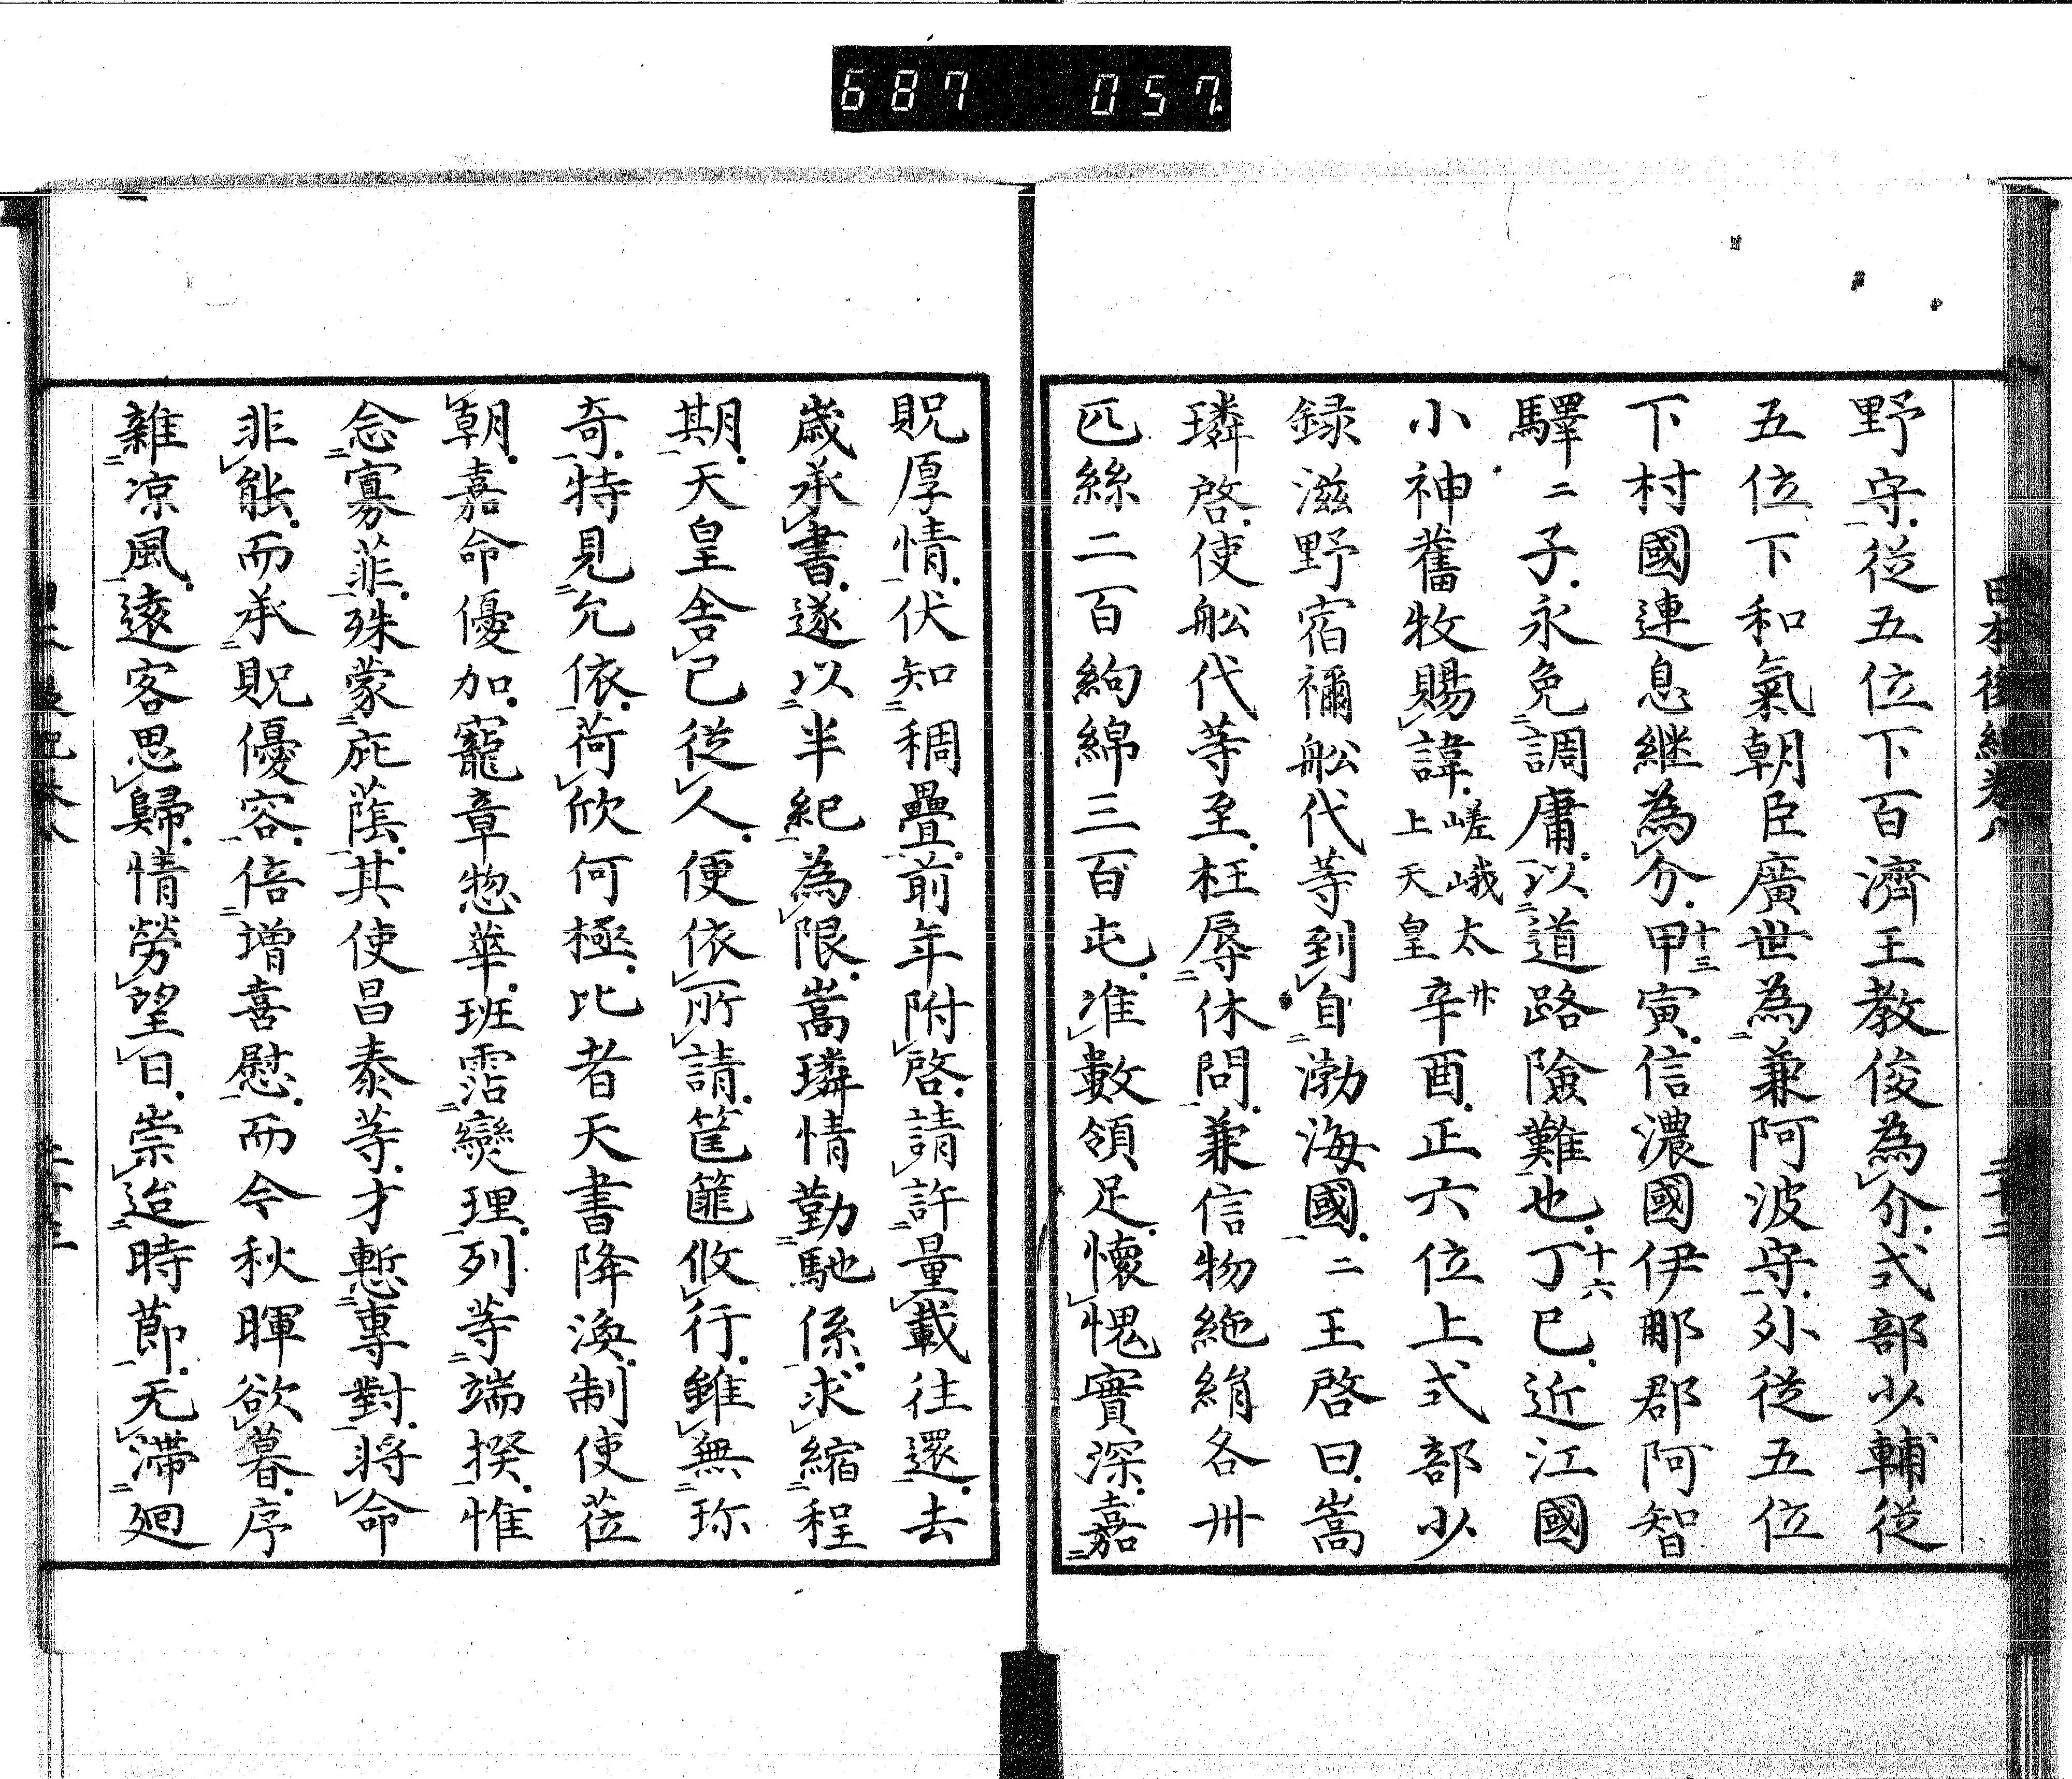 687 057
野守從五位下百濟王教俊為介式部少輔從
五位下和氣朝臣廣世為兼阿波守外從五位
下村國連息継為介十三甲寅信濃國伊那郡阿智
驛二子永免調庸以道路險難也十六丁巳近江國
小神舊牧賜諱嵯峨太上天皇廿辛酉正六位上式部少
録滋野宿禰舩代等到自渤海國二王啓曰嵩
璘啓使舩代等至枉辱休問兼信物絁絹各卅
匹絲二百絇綿三百屯准數領足懷愧實深嘉
貺厚情伏知稠疊前年附啓請許量載往還去
歲承書遂以半紀為限嵩璘情勤馳係求縮程
期天皇舎己從人便依所請筐篚攸行雖無珎
奇特見允依荷欣何極比者天書降渙制使莅
朝嘉命優加寵章惣華班霑爕理列等端揆惟
念寡菲殊蒙庇蔭其使昌泰等才慙專對將命
非能而承貺優容倍増喜慰而今秋暉欲暮序
雜凉風遠客思歸情勞望日崇迨時節无滯廻